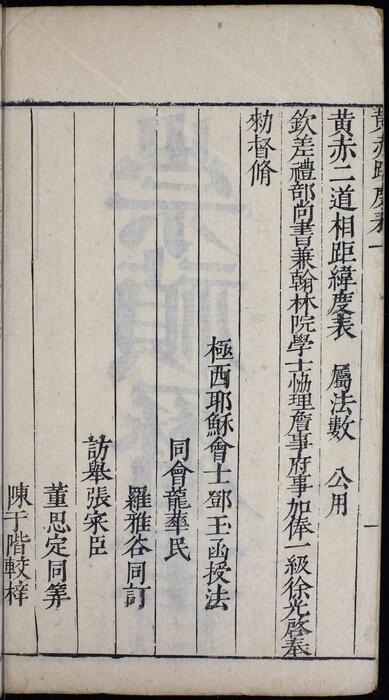 黃赤距度表 一
黃赤二道相距緯度表 屬法數 公用
欽差禮部尚書兼翰林院學士恊理詹事府事加俸一級徐光啓奉
勑督脩
極西耶穌會士鄧玉函授法
同會龍華民
羅雅谷同訂
訪舉張寀臣
董思定同筭
陳于階較梓